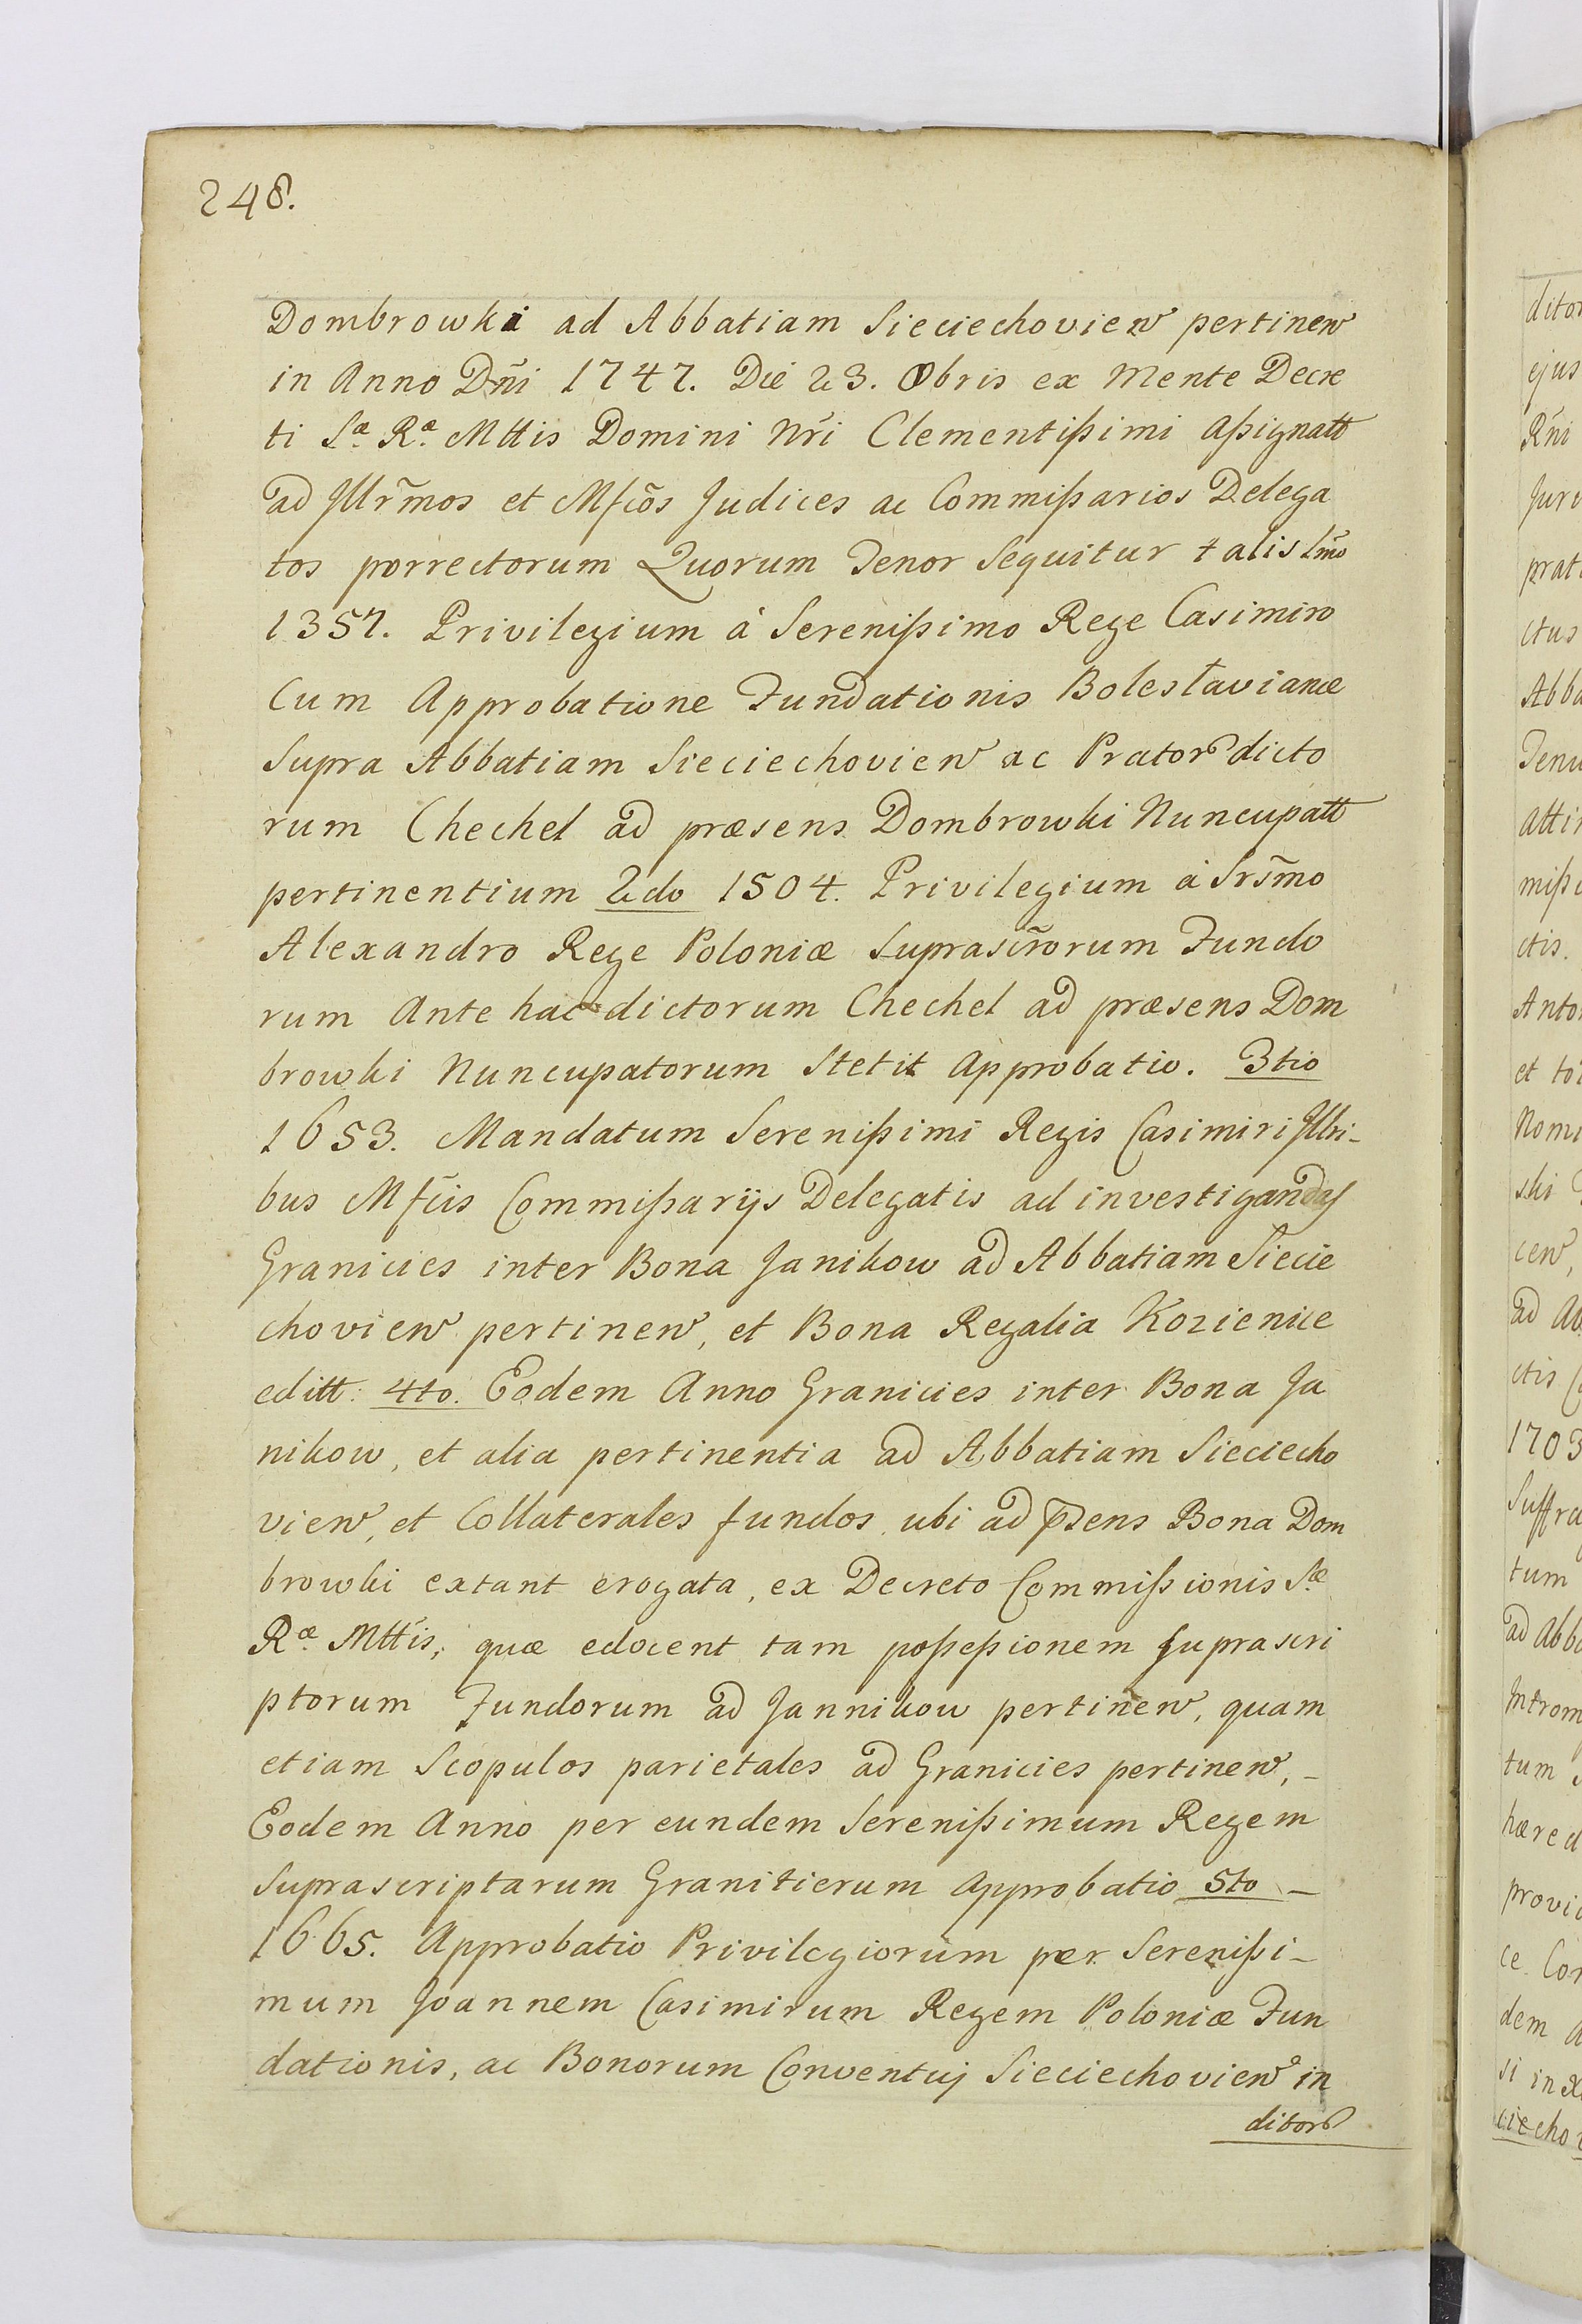 248.
Dombrowki ad Abbatiam Sieciechovien pertinen
in Anno Dñi 1747. Die 23. Obris ex Mente Decre
ti Sæ Ræ Mttis Domini Nři Clementißimi Aßignatt
ad Jllr̃mos et Mfcõs Judices ac Commißarios Delega
tos porrectorum Quorum Tenor Sequitur talis 1mo
1357. Privilegium à Serenißimo Rege Casimiro
Cum Approbatione Fundationis Bolesłavianæ
Supra Abbatiam Sieciechovien ac Prator dicto
rum Chechel ad præsens Dombrowki Nuncupatt
pertinentium 2do 1504. Privilegium à Srs̃mo
Alexandro Rege Poloniæ Suprascr̃orum Fundo
rum Ante hac dictorum Chechel ad præsens Dom
browki Nuncupatorum Stetit Approbatio. 3tio
1653. Mandatum Serenißimi Regis Casimiri Jllri-
bus Mfcis Commißarijs Delegatis ad investigandas
Granicies inter Bona Janikow ad Abbatiam Siecie
chovien pertinen, et Bona Regalia Kozienice
editt: 4to. Eodem Anno Granicies inter Bona Ja
nikow, et alia pertinentia ad Abbatiam Sieciecho
vien, et Collaterales fundos ubi ad p̃sens Bona Dom
browki extant erogata, ex Decreto Commißionis Sæ
Ræ Mttis, quæ edocent tam poßeßionem suprascri
ptorum Fundorum ad Jannikow pertinen, quam
etiam Scopulos parietales ad Granicies pertinen, -
Eodem Anno per eundem Serenißimum Regem
Suprascriptarum Granitierum Approbatio 5to -
1665. Approbatio Privilegiorum per Serenißi-
mum Joannem Casimirum Regem Poloniæ Fun
dationis, ac Bonorum Conventuj Sieciechovien in
ditor
ditor
ejus
Rñi
prat
ctus
Abba
ctis.
Anto
Nomi
ad Ab
ctis
1703
Suffra
tum
ad Abb
Introm
tum
hæred
ce Con
dem
ciecho